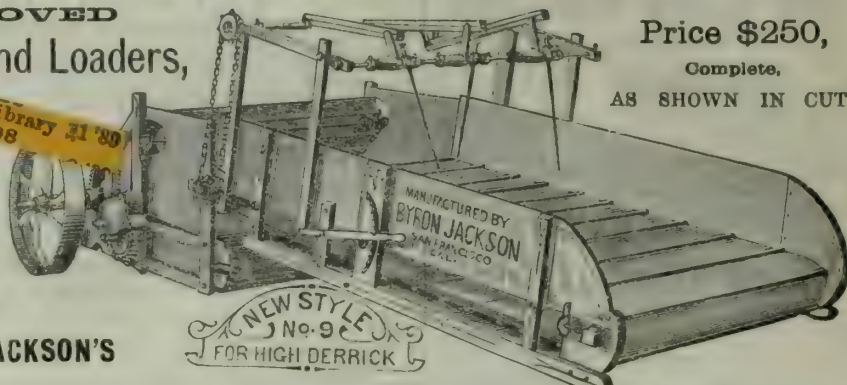 OVED
nd Loaders,
Price $250,
Complete,
AS SHOWN IN CUT
ibrary 21 '89
98
MANUFACTURED BY
BYRON JACKSON
SAN FRANCISCO
CAL.
NEW STYLE
No. 9
FOR HIGH DERRICK
ACKSON'S